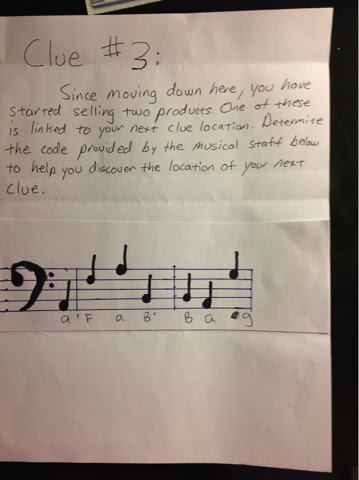 Clue #3:
Since moving down here, you have
started selling two products. One of these
is linked to your next clue location. Determine
the code provided by the musical staff below
to help you discover the location of your next
clue.
a ' F a B' B a g